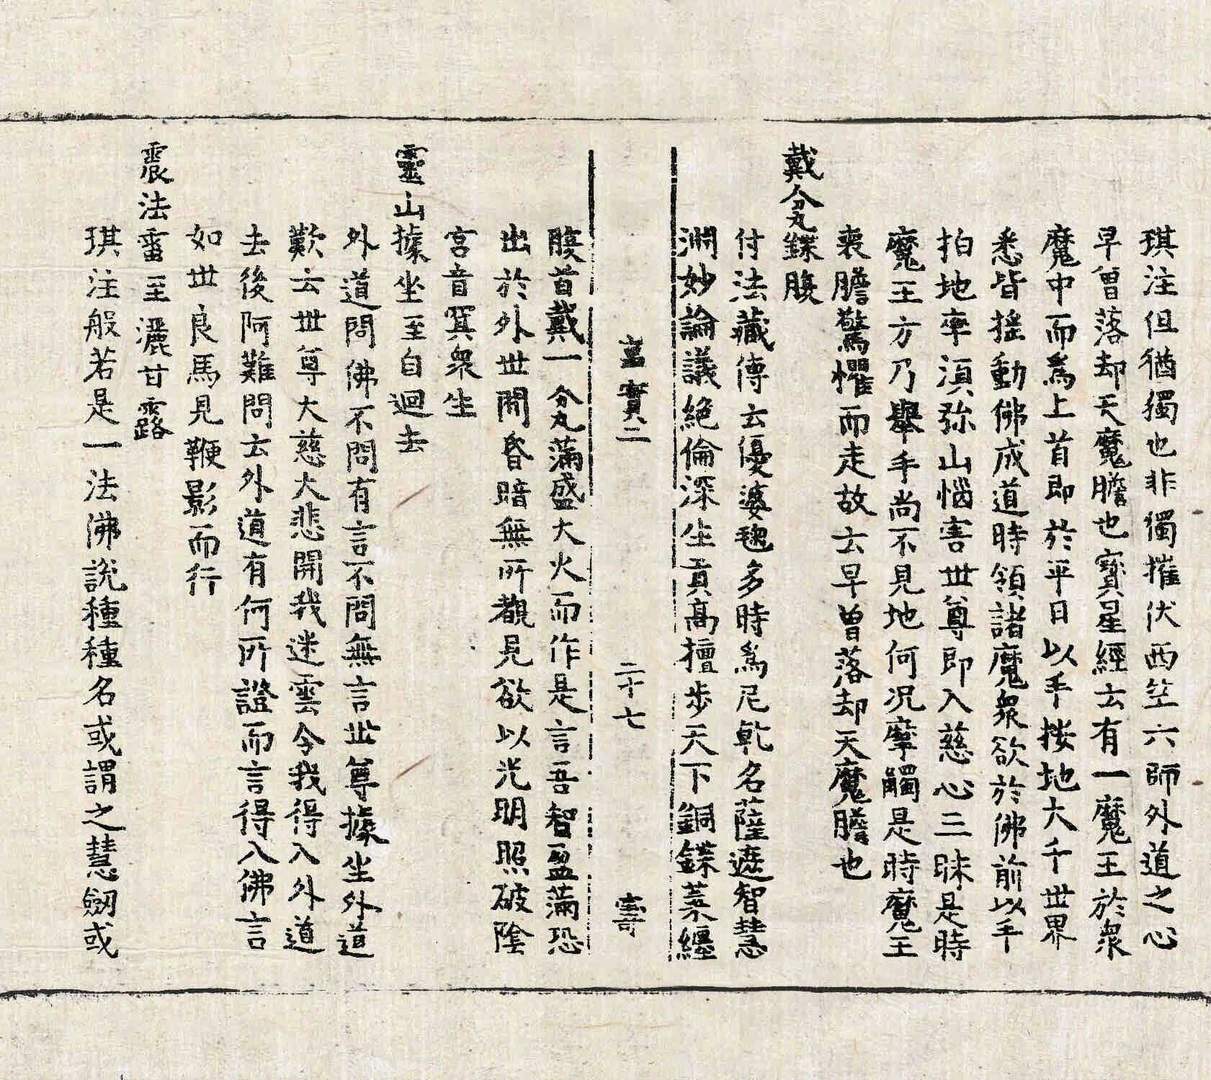 琪注但猶獨也非獨摧伏西竺六師外道之心
早曾落却天魔膽也寶星經云有一魔王於衆
魔中而爲上首即於平日以手按地大千世界
悉皆揺動佛成道時領諸魔衆欲於佛前以手
拍地率湏弥山惱害世尊即入慈心三昧是時
魔王方乃舉手尚不見地何况摩觸是時魔王
喪膽驚懼而走故云早曾落却天魔膽也
戴分丸鍱腹
付法藏傳云優婆毱多時爲尼乾名薩遮智慧
淵妙論議絶倫深生貢高擅步天下銅鍱葉纏
二十七
腹首戴一分丸滿盛大火而作是言吾智盈滿恐
出於外世間昏暗無所覩見欲以光明照破陰
宫音冥衆生
靈山據坐至自迴去
外道問佛不問有言不問無言世尊據坐外道
歎云世尊大慈大悲開我迷雲令我得入外道
去後阿難問云外道有何所證而言得入佛言
如世良馬見鞭影而行
震法雷至灑甘露
琪注般若是一法佛説種種名或謂之慧劒或